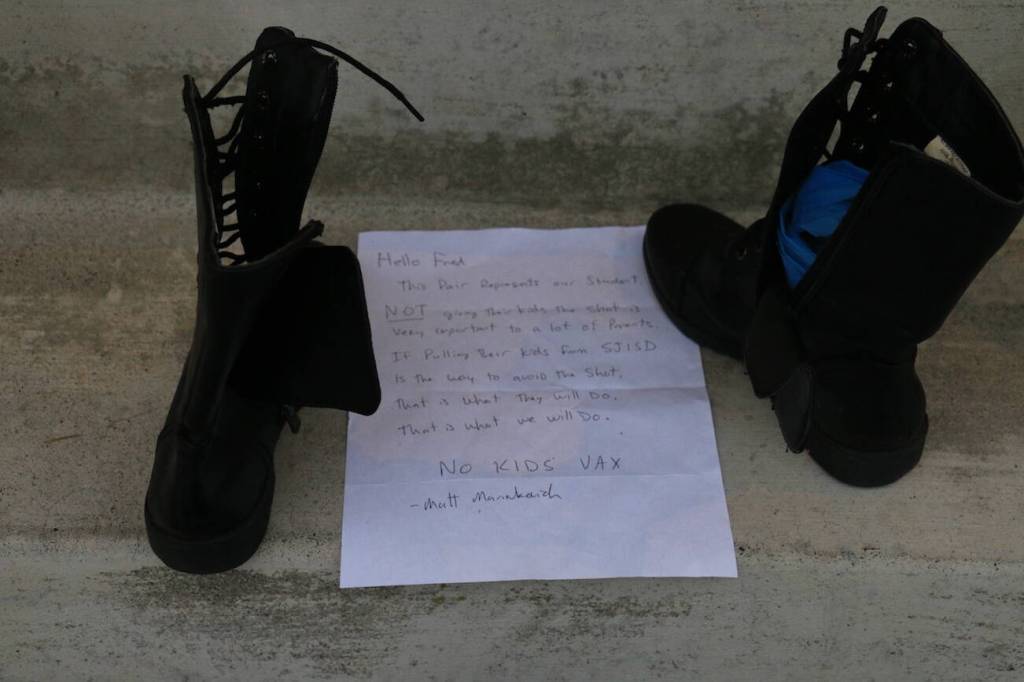 Hello Fred
This Pair Represents our Student.
NOT giving Their kids the Shot is
Very important to a lot of Parents.
If Pulling Their kids from SJISD
is the way to avoid the Shot,
that is what They will Do.
that is what we will Do.
NO KIDS VAX
- Matt Marinkovich